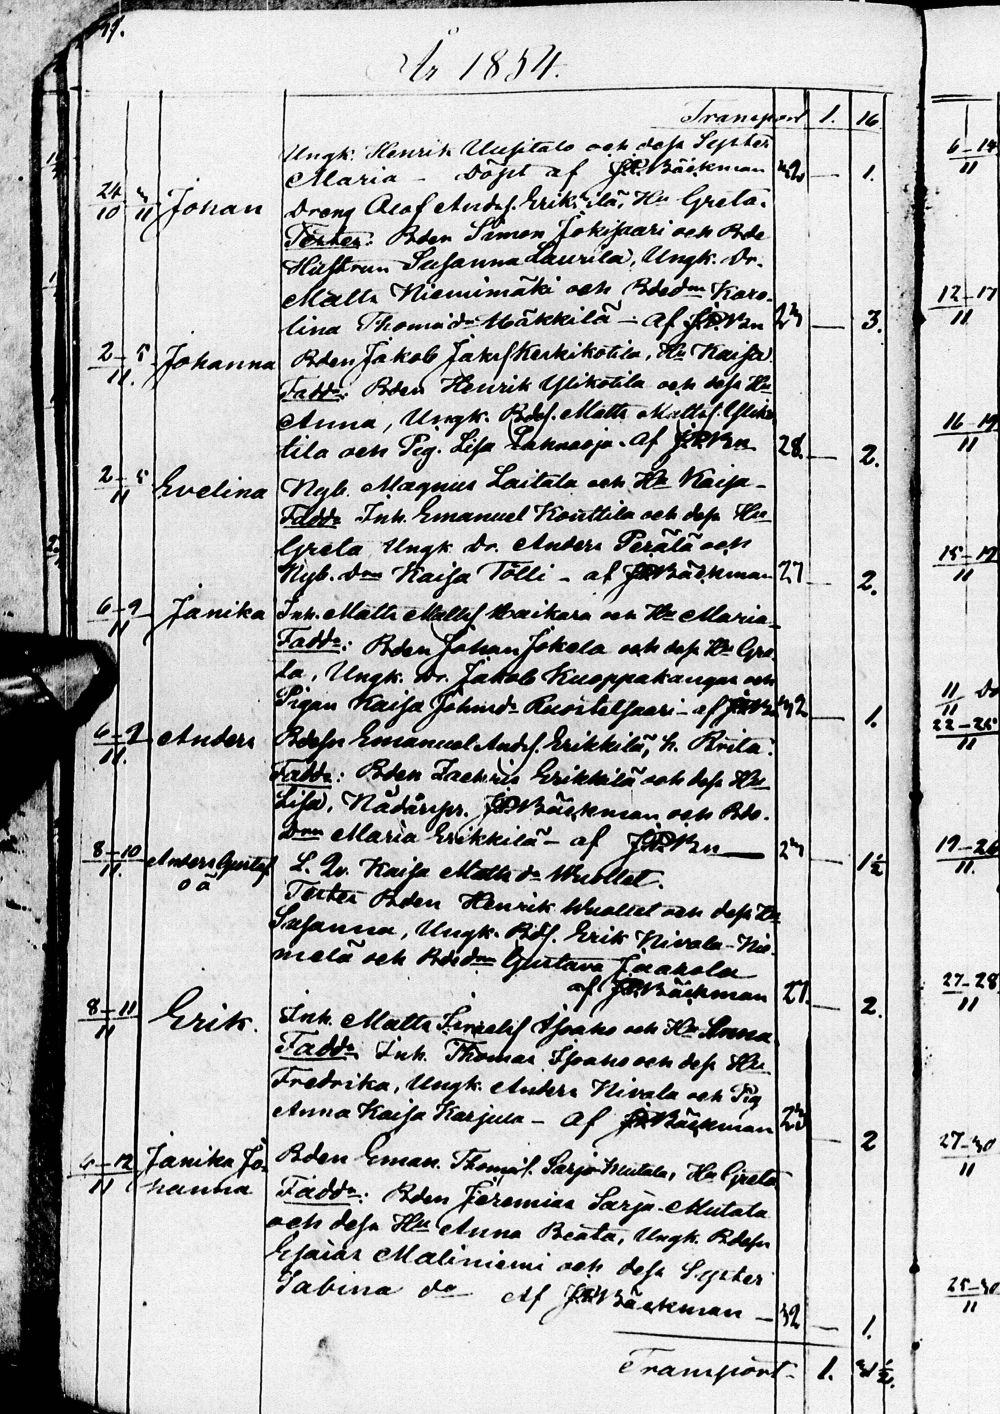 År 1854.
Transport 1. 16
Ungk. Henrik Uusitalo och dess Syster
Maria - Döpt af J.P. Bäckman 32 - 1.
24/10 3/11 Johan Dreng Olof Anders. Erikkilä, Hu Greta.
Testes: Bden Simon Jokisaari och Bde
Hustrun Susanna Laurila, Ungk. Dr.
Matts Niemimäki och Bdedm Karo-
lina Thomædr Mäkkilä - af J.P. Bn 23 - 3.
2-5/11. Johanna Bden Jakob Jakss Keskikotila, Hu Kaisa.
Fadd: Bden Henrik Ylikotila och dess Hu
Anna, Ungk. Bds. Matts Matts. Yliko
tila och Pig. Lisa Lahnaoja. af J.P. Bn 28. - 2.
2-5/11 Evelina Nyb. Magnus Laitala och Hu Kaisa -
Fadd Inh. Emanuel Kouttila och dess Hu
Greta Ungk Dr. Anders Perälä och
Nyb. Dm Kaisa Tölli - af J.P. Bäckman 27 - 2.
6-9/11 Janika Inh. Matts Matts Haikara och Hu Maria -
Fadd: Bden Johan Jokela och dess Hu Gre-
ta, Ungk. Dr. Jakob Kuoppakangas och
Pigan Kaisa Johnsdr - af J.P. Bn 32 - 1.
6-9/11. Anders Bdesn Emanuel Anders. Erikkilä, h. Brita.
Fadd: Bden Zachris Erikkilä och dess Hu
Lisa, Nådårspr. J.P. Bäckman och Bde-
Dm Maria Erikkilä - af J.P. Bn 23 - 1½
8-10/11. Anders Gustaf oä L. Qv. Kaisa Mattsdr Wuollet.
Testes Bden Henrik Wuollet och dess Hu
Susanna, Ungk. Bds. Erik Nivala-Nie-
melä och Bdedm Gustava Jaakola
af J.P. Bäckman 27. - 2.
8-11/11 Erik. Inh. Matts och Hu Anna
Fadd Inh. Thomas och dess Hu
Fredrika, Ungk. Anders Nivala och Pig
Anna Kaisa Karjula - af J.P. Bäckman 23 - 2
6-12/11 Janika Jo-
hanna Bden Eman. Thomas. Sarja-Mutala, Hu Greta
Fadd: Bden Jeremias Sarja-Mutala
och dess Hu Anna Beata, Ungk. Bdesn
Esaias Maliniemi och dess Syster
Sabina do af J.P. Bäckman - 32 - 1.
Transport - 1. 31½.
6-14/11
12-17/11
16-19/11
15-19/11
11/11 Do
22-25/11
19-26/11.
27-28/11
27-30/11
25-30/11